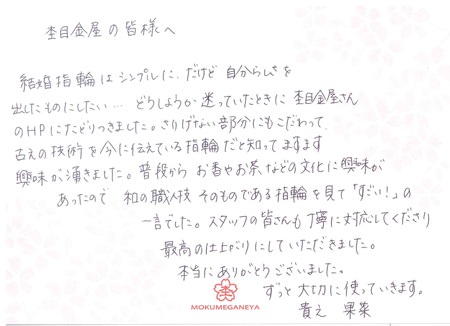 杢目金屋の皆様へ
結婚指輪はシンプルに、だけど自分らしさを
出したものにしたい…どうしようか迷っていたときに杢目金屋さん
のHPにたどりつきました。さりげない部分にもこだわって
古えの技術を今に伝えている指輪だと知ってますます
興味が湧きました。普段からお香やお茶などの文化に興味が
あったので 和の職人技そのものである指輪を見て「すごい！」の
一言でした。スタッフの皆さんも丁寧に対応してくださり
最高の仕上がりにしていただきました。
本当にありがとうございました。
ずっと大切に使っていきます。
貴之 果菜
MOKUMEGANEYA